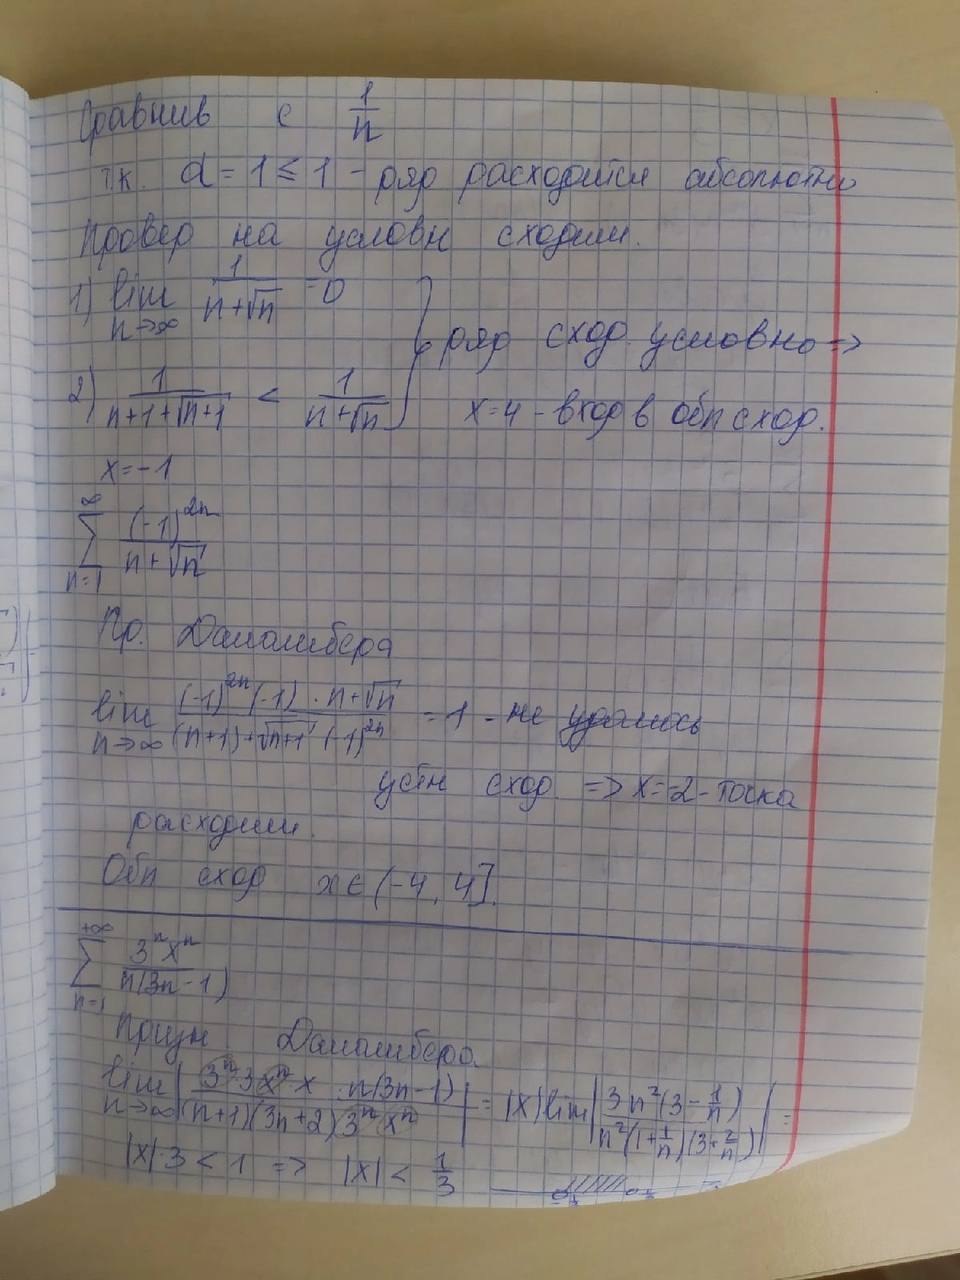 Сравнив с 1/n
т.к. α = 1 ≤ 1 - ряд расходится абсолютно
Провер на условн сходим.
1) lim n→∞ 1/(n+√n) = 0
ряд сход. условно =>
2) 1/(n+1+√(n+1)) < 1/(n+√n)
x=4 - вход в обл сход.
x=-1
∑ n=1 ∞ (-1)^2n/(n+√n)
Пр. Даламбера
lim n→∞ ((-1)^2n (-1) · n+√n)/((n+1)+√(n+1) (-1)^2n) = 1 - не удалось
устн сход. => x=-2 - точка
расходим.
Обл сход x∈(-4, 4].
∑ n=1 +∞ 3^n x^n/(n(3n-1))
Призн Даламбера
lim n→∞ |(3^n·3x^n·x · n(3n-1))/((n+1)(3n+2)3^n x^n)| = |x| lim |3n²(3-1/n)/(n²(1+1/n)(3+2/n))| =
|x|·3 < 1 => |x| < 1/3